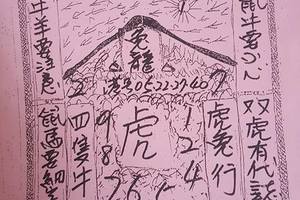 鼠牛要小心
双虎有代誌
兔龍
港号05-22-29-40
7
2
虎兔行
1
2
4
虎
9
8
四隻牛
牛羊要注意
鼠馬要細